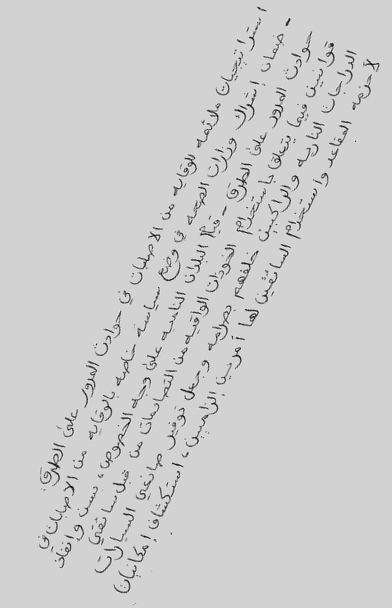 استراتيجيات ملائمه للوقايه من الاصابات في حوادث المرور على الطرق:
- ضمان إشراك وزارات الصحه في وضع سياسة خاصه بالوقايه من الاصابات في
حوادث المرور على الطرق - قيام البلدان الناميه على وجه الخصوص، بسن وإنفاذ
قوانين فيما يتعلق باستخدام الخوذات الواقيه من التصادمات من قبل سائقي
الدراجات الناريه والراكبين خلفهم بصرامه وجعل توفير صانعي السيارات
لأحزمه المقاعد واستخدام السائقين لها أمرين إلزاميين، استكشاف إمكانيات